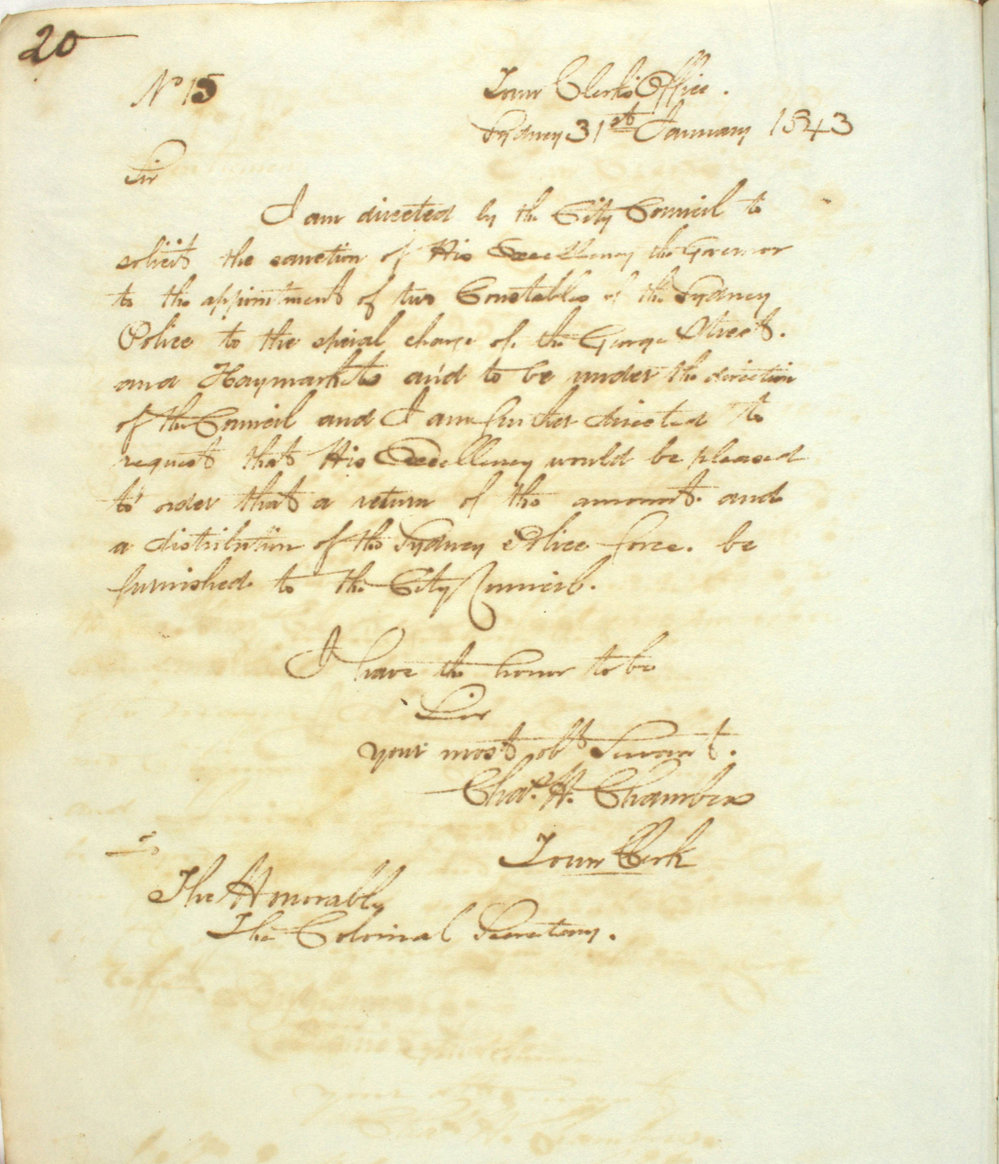 20
No 15
Town Clerk's Office.
Sydney 31st January 1843
Sir
I am directed by the City Council to
solicit the sanction of His Excellency the Governor
to the appointment of two Constables of the Sydney
Police to the special charge of the George Street.
and Haymarkets and to be under the direction
of the Council and I am further directed to
request that His Excellency would be pleased
to order that a return of the amount and
a distribution of the Sydney Police force. be
furnished to the City Council.
I have the honor to be
Sir
your most obt Servant.
Chas. H. Chambers
Town Clerk
To
The Honorable
The Colonial Secretary.